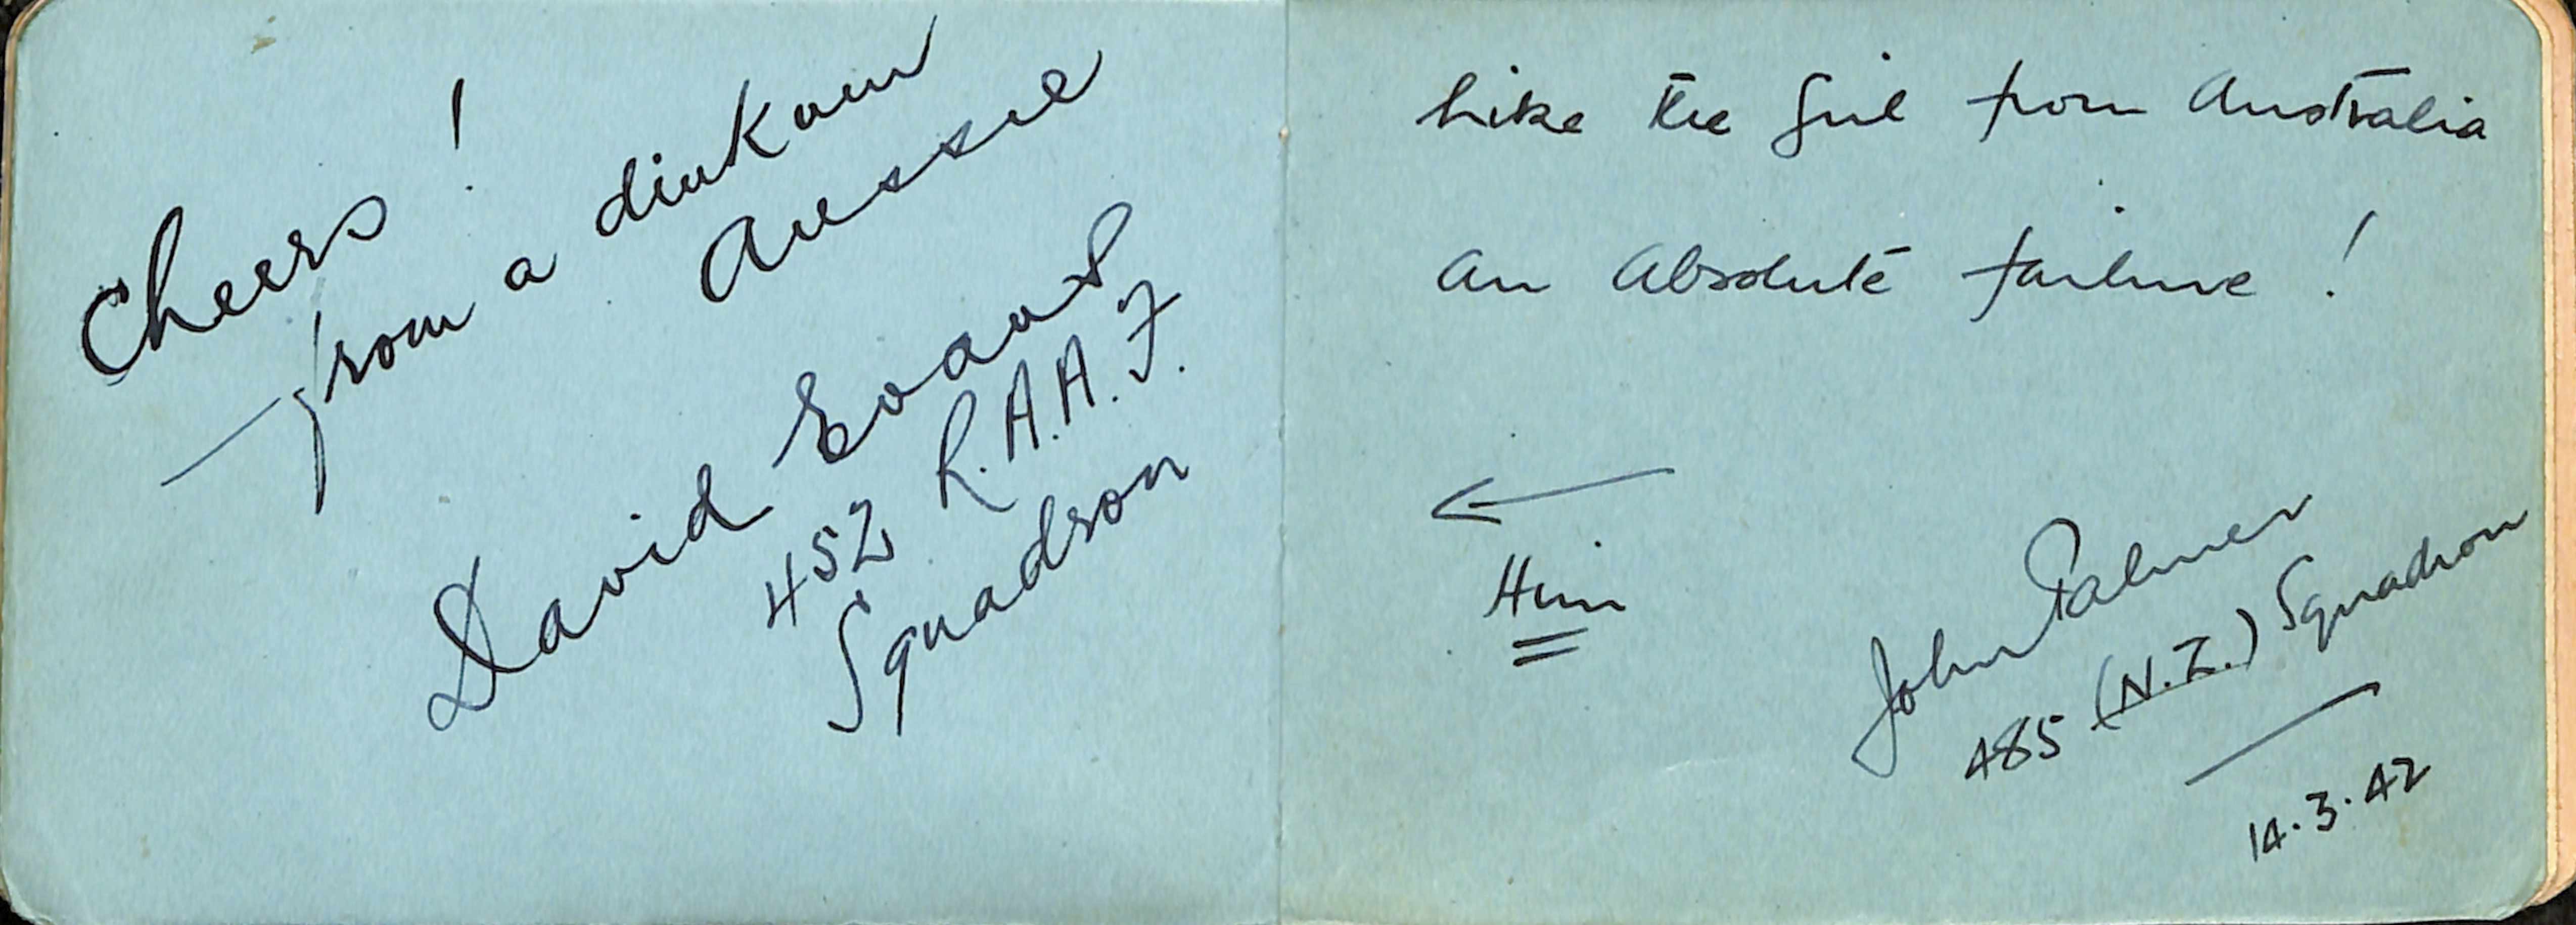 Cheers!
from a dinkum
Aussie
David Evans
452 R.A.A.F.
Squadron
Like the Girl from Australia
An Absolute failure!
←
Him
John Palmer
485 (N.Z.) Squadron
14.3.42